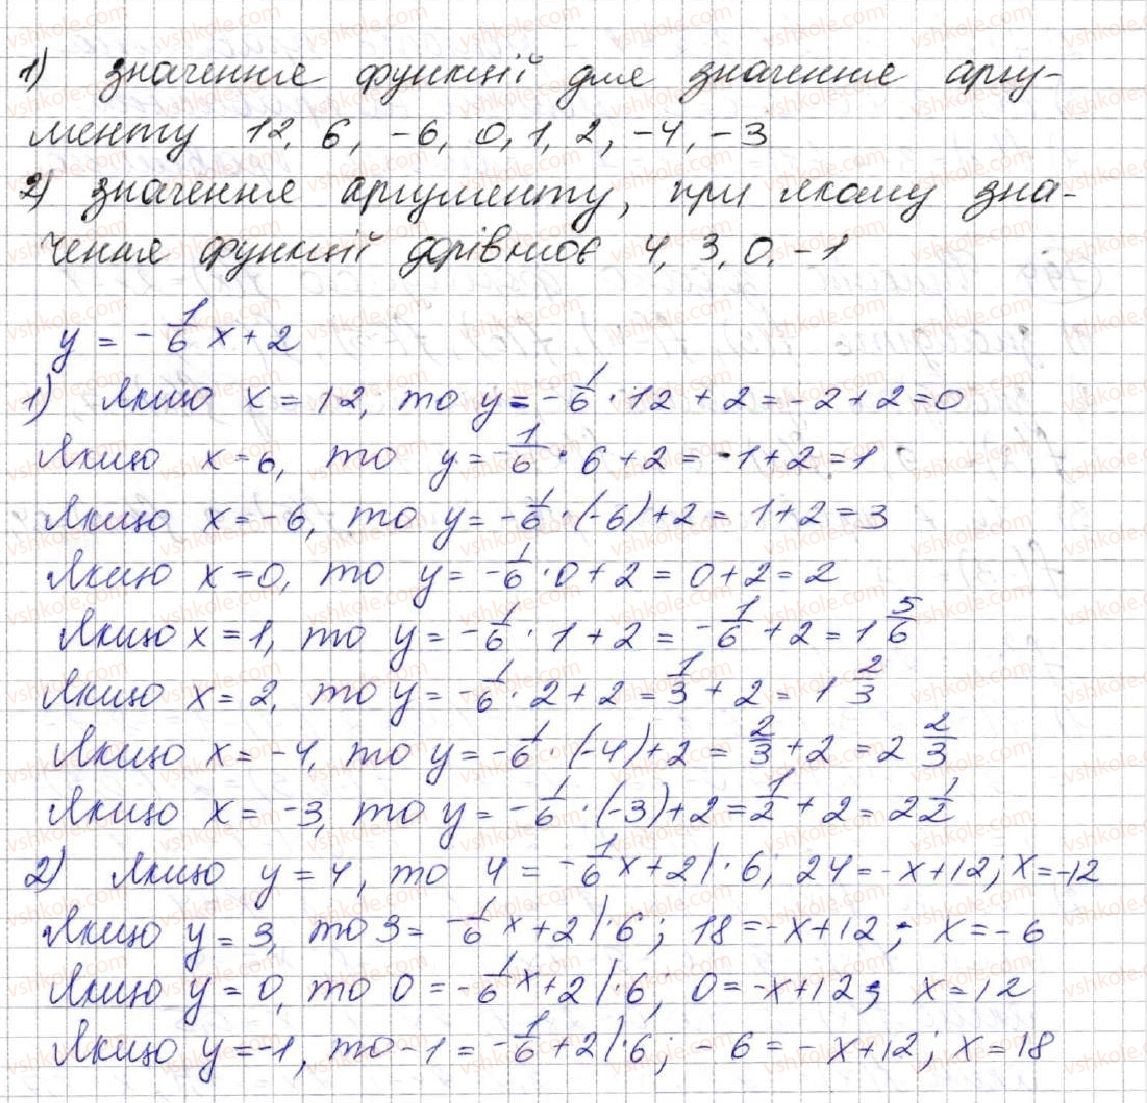 1) значення функції для значення аргу-
менту 12, 6, -6, 0, 1, 2, -4, -3
2) значення аргументу, при якому зна-
чення функції дорівнює 4, 3, 0, -1
y = -1/6 x + 2
1) Якщо x = 12, то y = -1/6 · 12 + 2 = -2 + 2 = 0
Якщо x = 6, то y = -1/6 · 6 + 2 = -1 + 2 = 1
Якщо x = -6, то y = -1/6 · (-6) + 2 = 1 + 2 = 3
Якщо x = 0, то y = -1/6 · 0 + 2 = 0 + 2 = 2
Якщо x = 1, то y = -1/6 · 1 + 2 = -1/6 + 2 = 1 5/6
Якщо x = 2, то y = -1/6 · 2 + 2 = 1/3 + 2 = 1 2/3
Якщо x = -4, то y = -1/6 · (-4) + 2 = 2/3 + 2 = 2 2/3
Якщо x = -3, то y = -1/6 · (-3) + 2 = 1/2 + 2 = 2 1/2
2) Якщо y = 4, то 4 = -1/6 x + 2 | · 6; 24 = -x + 12; x = -12
Якщо y = 3, то 3 = -1/6 x + 2 | · 6; 18 = -x + 12; x = -6
Якщо y = 0, то 0 = -1/6 x + 2 | · 6; 0 = -x + 12; x = 12
Якщо y = -1, то -1 = -1/6 + 2 | · 6; -6 = -x + 12; x = 18